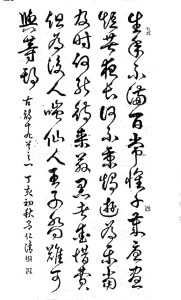 生年不滿百常懷千歲憂晝
短苦夜長何不秉燭遊為樂當
及時何能待來茲愚者愛惜費
但為後人嗤仙人王子喬難可
與等期 古詩十九首之一 丁亥初秋